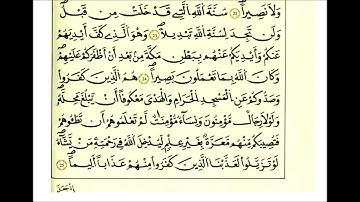 وَلَا نَصِيرًا ٢٢ سُنَّةَ اللَّهِ الَّتِي قَدْ خَلَتْ مِن قَبْلُ
وَلَن تَجِدَ لِسُنَّةِ اللَّهِ تَبْدِيلًا ٢٣ وَهُوَ الَّذِي كَفَّ أَيْدِيَهُمْ
عَنكُمْ وَأَيْدِيَكُمْ عَنْهُم بِبَطْنِ مَكَّةَ مِن بَعْدِ أَنْ أَظْفَرَكُمْ عَلَيْهِمْ
وَكَانَ اللَّهُ بِمَا تَعْمَلُونَ بَصِيرًا ٢٤ هُمُ الَّذِينَ كَفَرُوا
وَصَدُّوكُمْ عَنِ الْمَسْجِدِ الْحَرَامِ وَالْهَدْيَ مَعْكُوفًا أَن يَبْلُغَ مَحِلَّهُ
وَلَوْلَا رِجَالٌ مُّؤْمِنُونَ وَنِسَاءٌ مُّؤْمِنَاتٌ لَّمْ تَعْلَمُوهُمْ أَن تَطَئُوهُمْ
فَتُصِيبَكُم مِّنْهُم مَّعَرَّةٌ بِغَيْرِ عِلْمٍ لِّيُدْخِلَ اللَّهُ فِي رَحْمَتِهِ مَن يَشَاءُ
لَوْ تَزَيَّلُوا لَعَذَّبْنَا الَّذِينَ كَفَرُوا مِنْهُمْ عَذَابًا أَلِيمًا ٢٥
إِذْ جَعَلَ